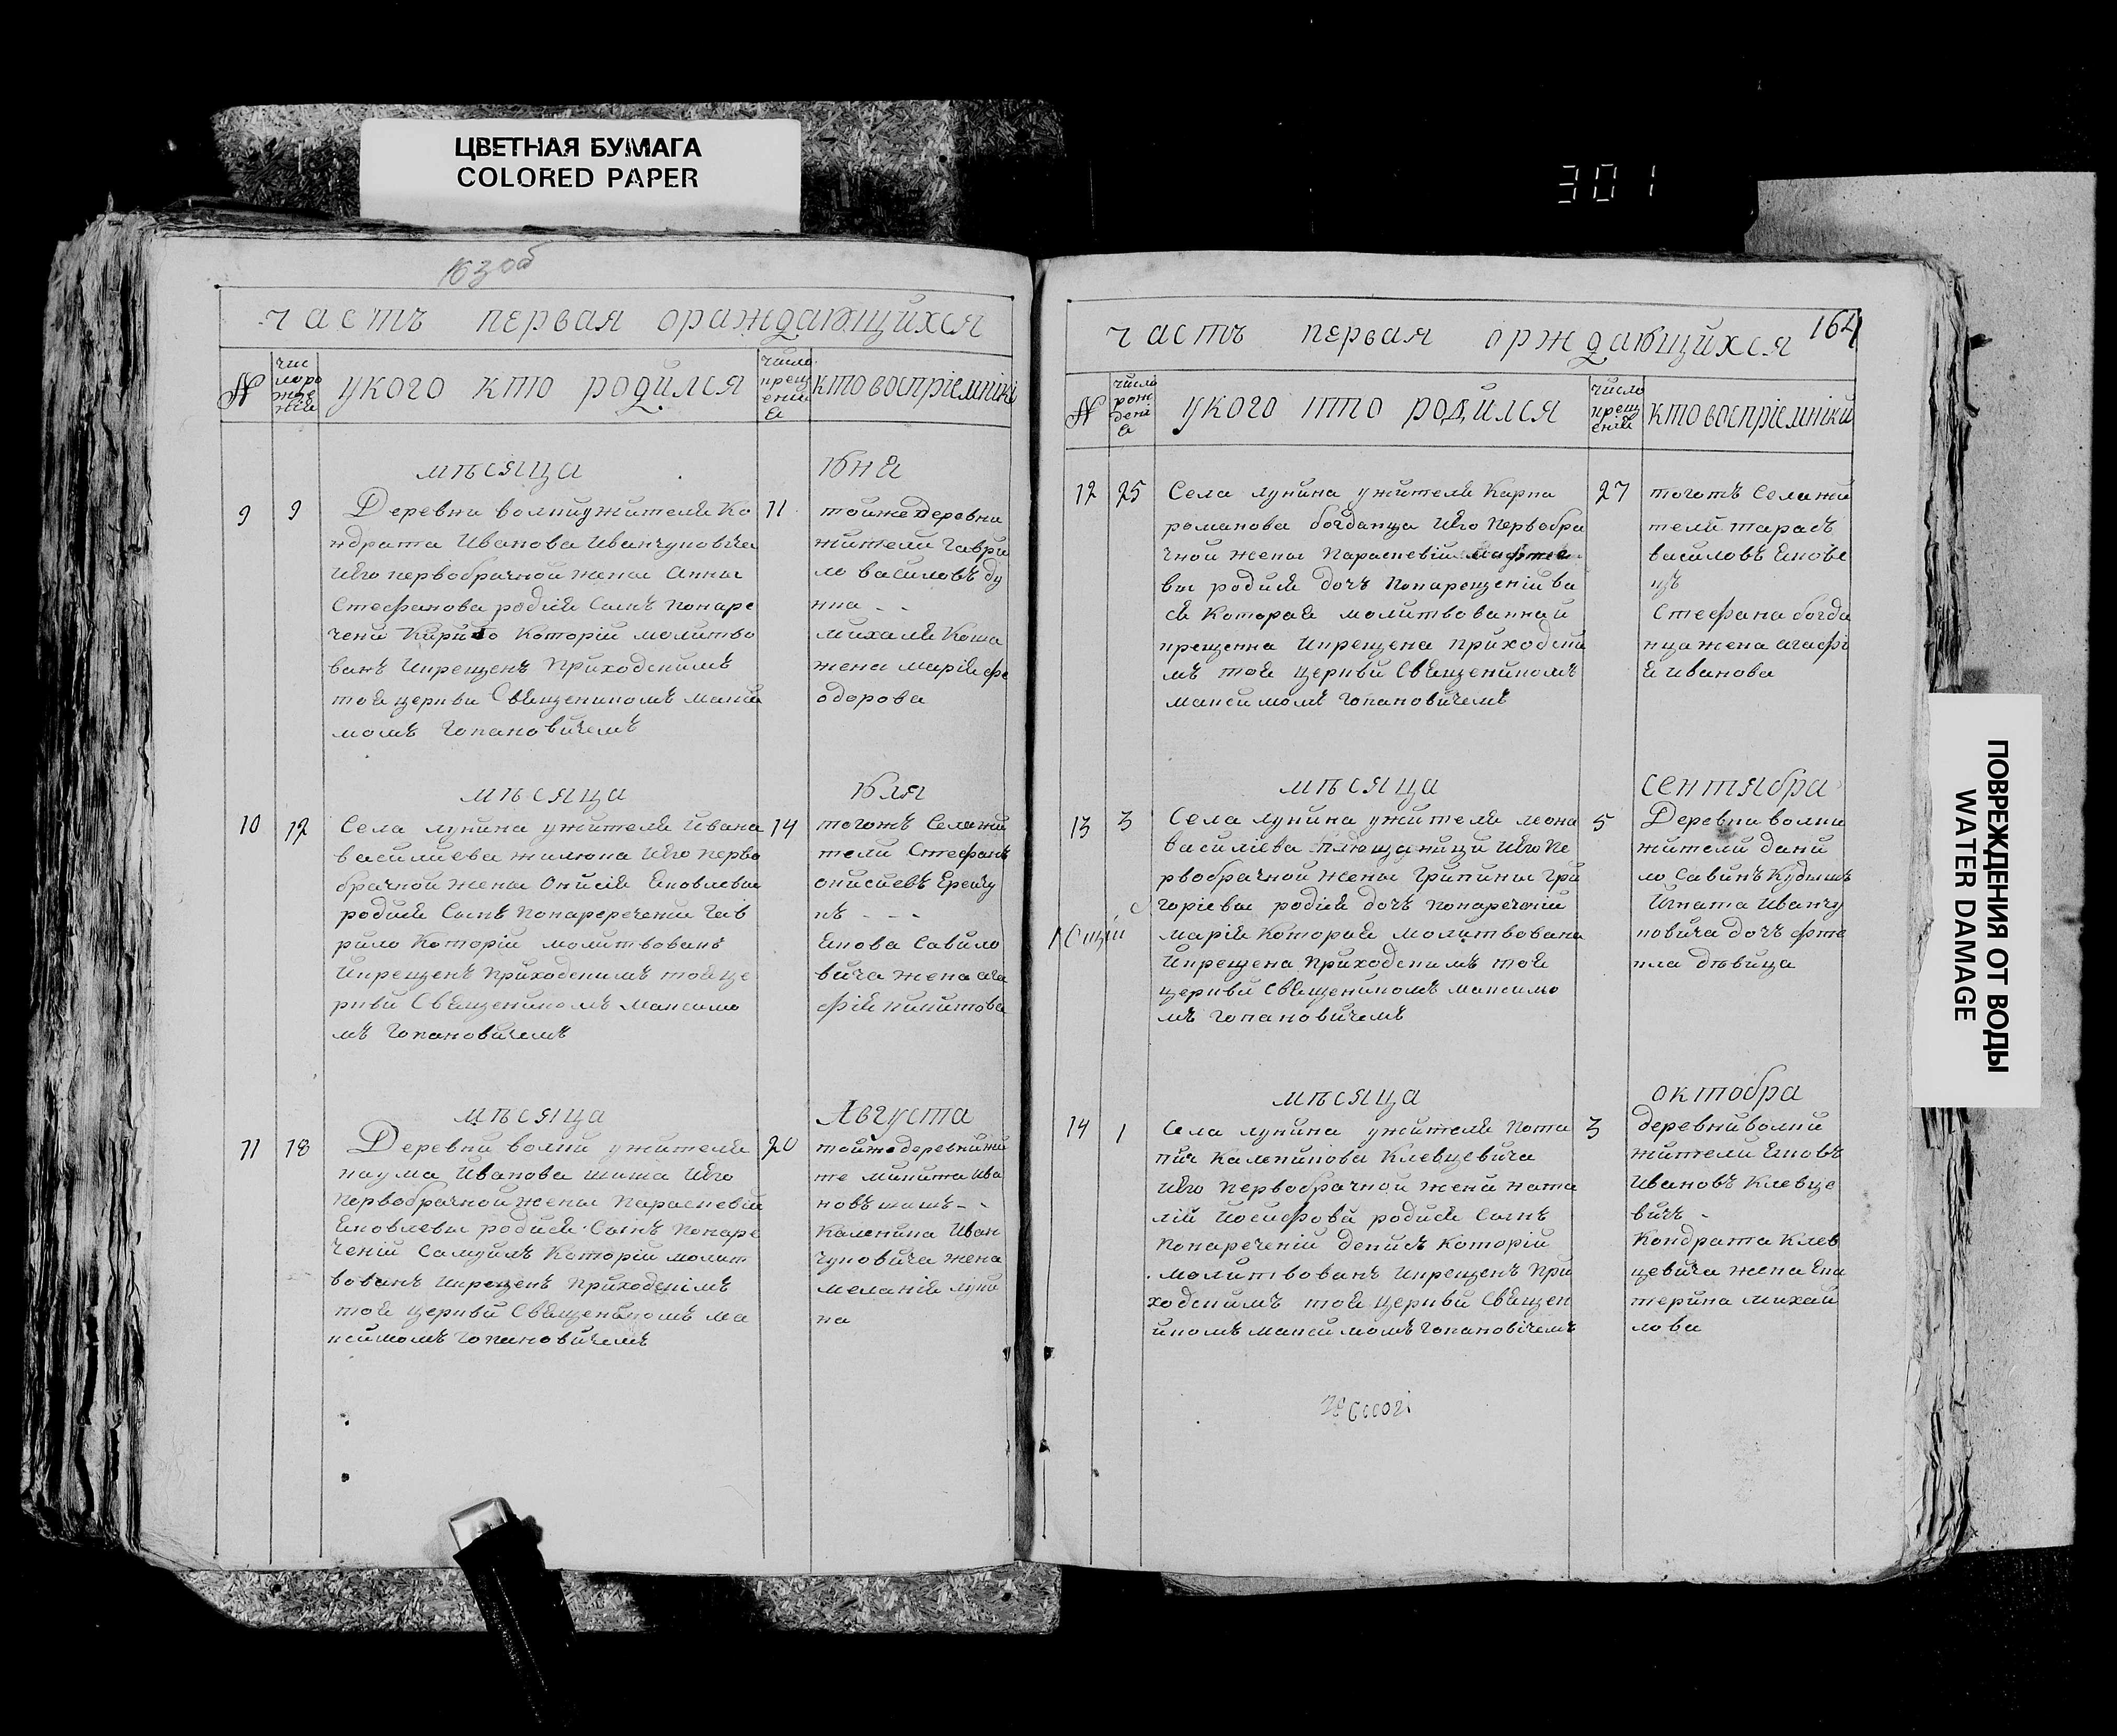 ЦВЕТНАЯ БУМАГА
COLORED PAPER
301
163 об
часть первая ораждающийхся
№
чис
ло ро
жде
ній
укого кто родился
число
крещ
ений
кто воспріемнікі
мѣсяца Юня
9 9
Деревни волпи ужителя Ко
ндрата Иванова Иванчуковича
Его первобрачной жены Анны
Стефанова родися Сынъ Понаре
чени Которій молитво
ванъ Икрещенъ Приходскимъ
той церкви Священикомъ макси
момъ Гопановичемъ
11
тойже деревни
жители Гаври
ло василовъ ду
михаля Коша
жена марія фе
одорова
мѣсяца Юля
10 12
Села лунина ужителя Ивана
василиева жилюка Его перво
брачной жены Онисія Ековлевы
родися Сынъ Понаречении Гав
рило Которіи молитвованъ
Икрещенъ Приходскимъ той це
ркви Священикомъ Максимо
мъ Гопановичемъ
14
тогожъ Села жи
тели Стефанъ
онисиевъ
Екова Савило
вича жена ага
фія никитова
мѣсяца Августа
11 18
Деревни волпи ужителя
наума Иванова шиша Его
Первобрачной жены Параскевіи
Ековлевы родися Сынъ Понаре
ченій Самуилъ Которіи молит
вованъ Икрещенъ Приходскімъ
той церкви Священикомъ ма
ксимомъ Гопановичемъ
20
тойже деревни жи
те микита Ива
новъ шишъ
каленика Иван
чуковича жена
меланія луки
на
164
часть первая орждающийхся
№
число
рож
дені
я
укого кто родился
число
крещ
еній
кто воспріемники
12 25
Села лунина ужителя Карпа
романова богданца Его Первобра
чной жены Параскевіи
вы родися дочъ Понарещеній ва
ся Которая молитвованнай
крещенна Икрещена приходски
мъ той церкви Священикомъ
максимомъ Гопановичемъ
27
тоготъ Села жи
тели тарасъ
василовъ Екове
цъ
Стефана богда
нца жена агафі
я Иванова
мѣсяца сентября
13 3
Села лунина ужителя леона
василіева Его Пе
рвобрачной жены Грипины Гри
горіевы родися дочъ Понаречений
марія Которая молитвована
Икрещена Приходскимъ той
церкви Священикомъ максимо
мъ Гопановичемъ
5
Деревни волпи
жители дани
ло Савинъ Кудышъ
Игната Иванчу
ковича дочъ фте
кла дѣвица
мѣсяца октобра
14 1
Села лунина ужителя Пота
пия Каленикова Клевцевича
Его Первобрачной жени ната
лій Иосифови родися Сынъ
Понареченій денисъ Которій
молитвованъ Икрещенъ При
ходскимъ той церкви Священ
икомъ максимомъ Гопановічемъ
3
деревни волпи
жители Еков
Ивановъ Клевце
вичъ
Кондрата Клев
цевича жена Ека
терина михай
лова
ПОВРЕЖДЕНИЯ ОТ ВОДЫ
WATER DAMAGE